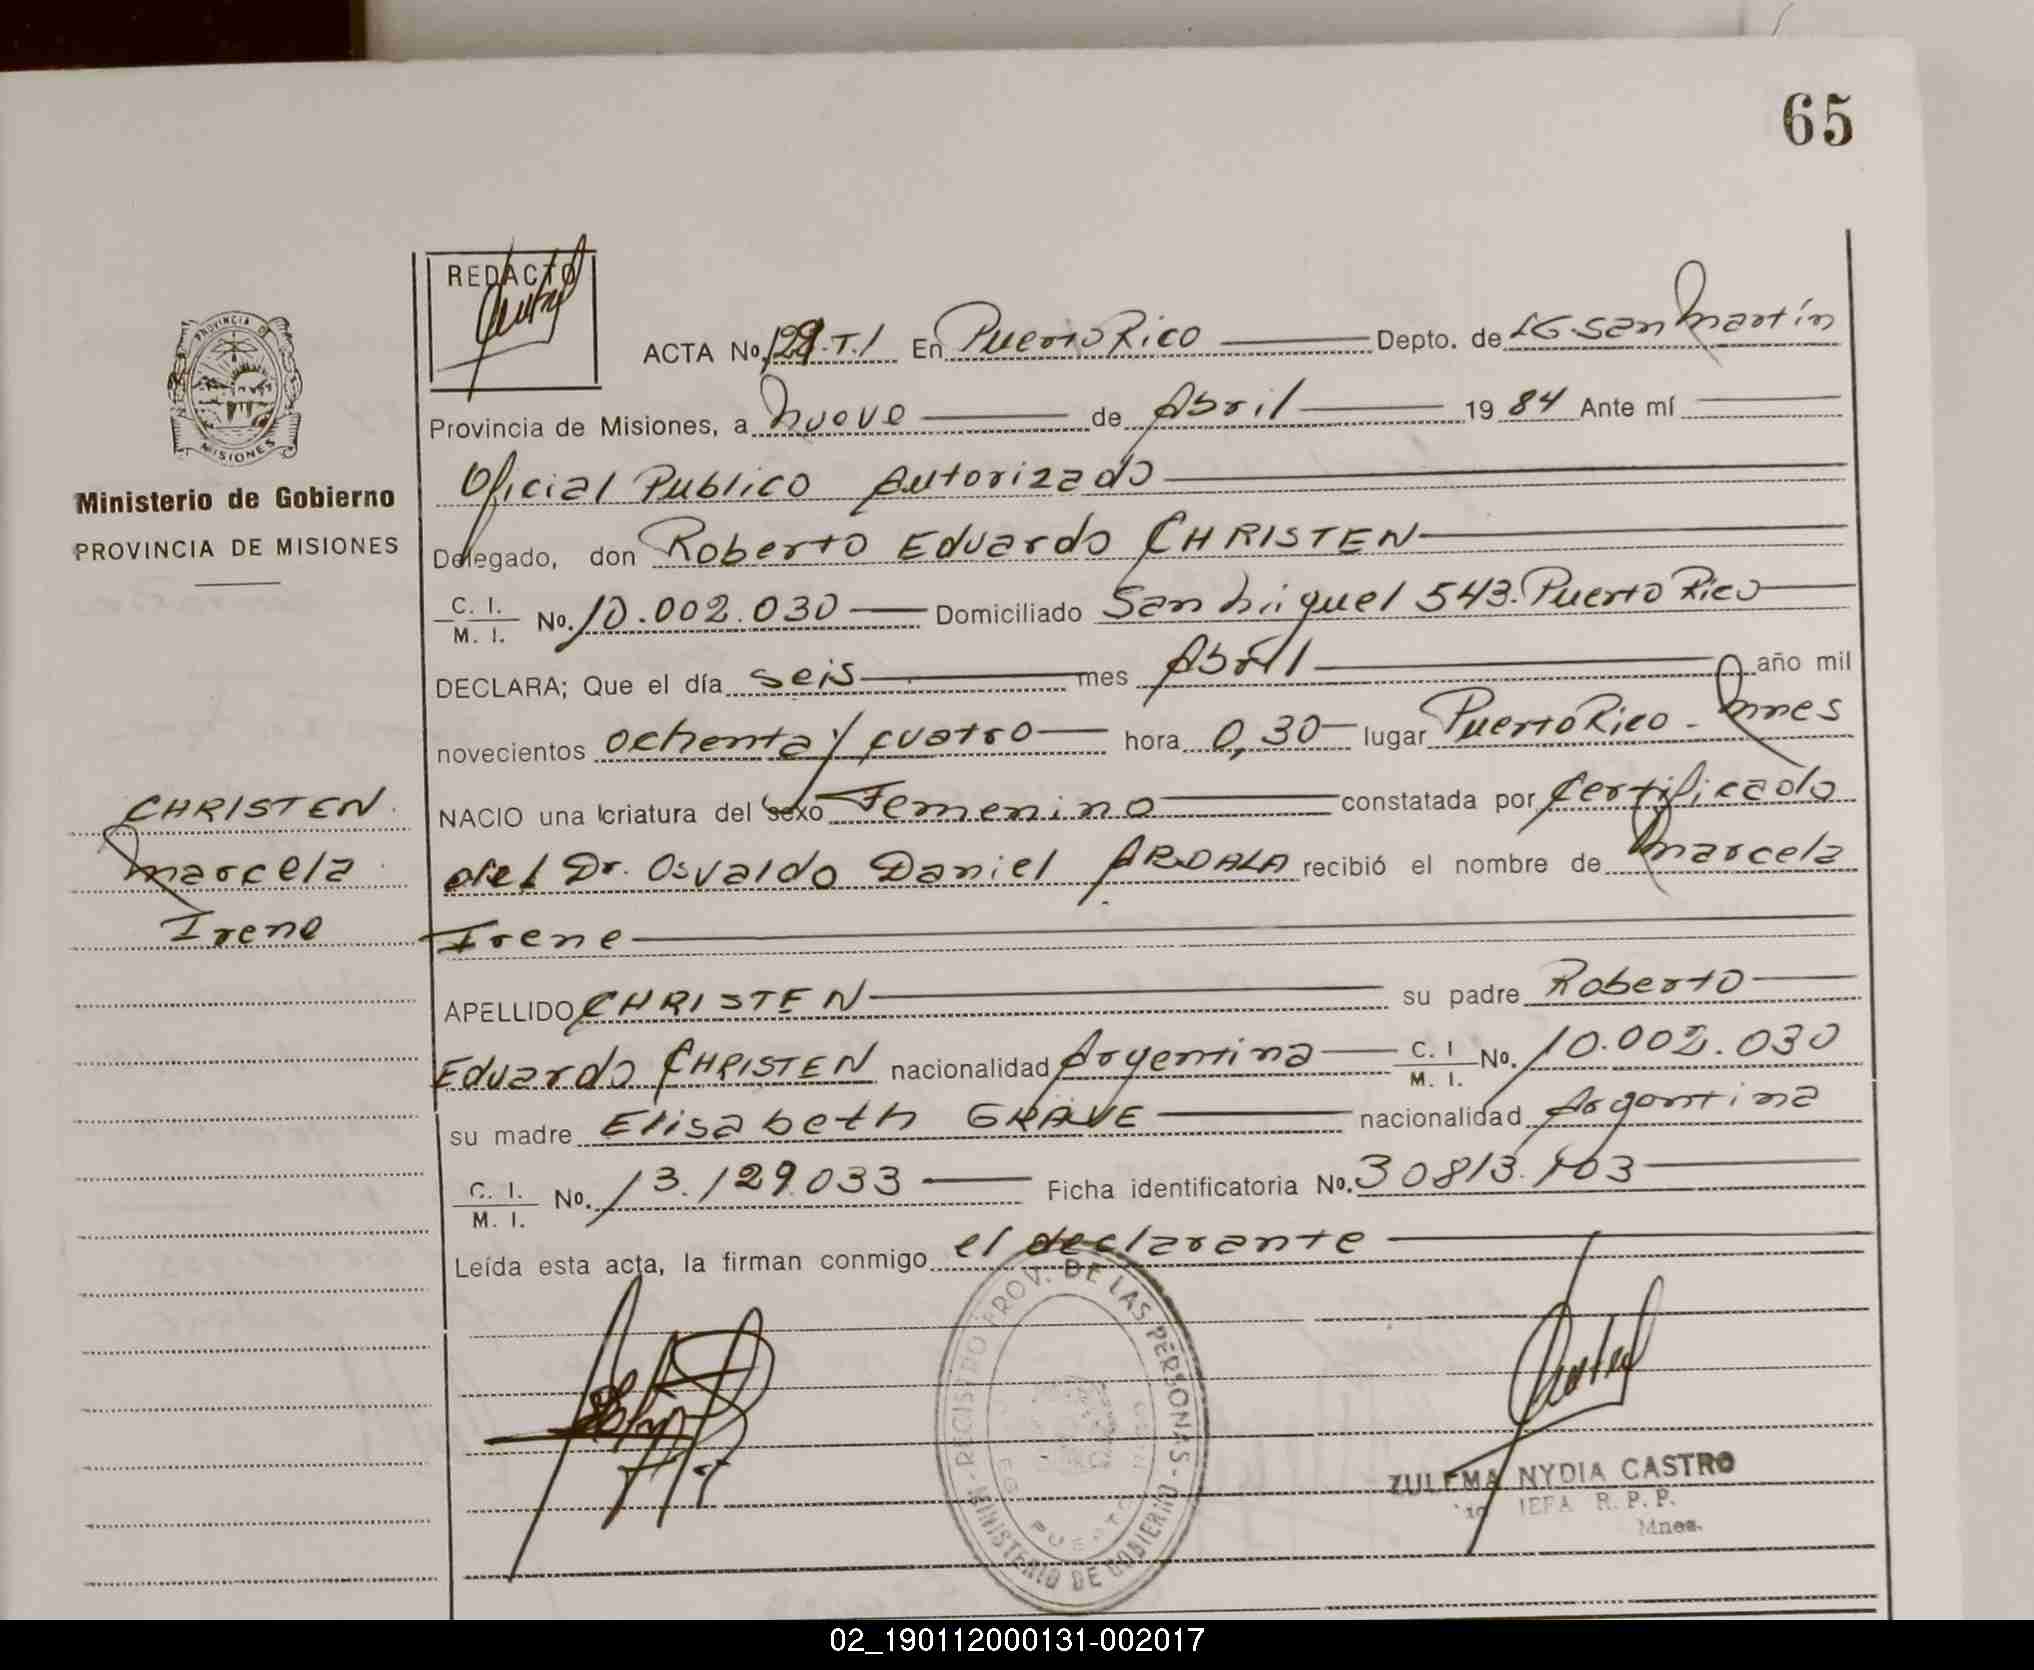 65
REDACTO
ACTA No. 129.T.1 En Puerto Rico Depto. de LG San Martín
Provincia de Misiones, a nueve de Abril 1984 Ante mí
Oficial Publico Autorizado
Delegado, don Roberto Eduardo CHRISTEN
C. I. / M. I. No. 10.002.030 Domiciliado San Miguel 543. Puerto Rico
DECLARA; Que el día seis mes Abril año mil
novecientos ochenta y cuatro hora 0,30 lugar Puerto Rico - Mnes
NACIO una criatura del sexo Femenino constatada por Certificado
del Dr. Osvaldo Daniel ARDALA recibió el nombre de Marcela
Irene
APELLIDO CHRISTEN su padre Roberto
Eduardo CHRISTEN nacionalidad Argentina C. I / M. I. No. 10.002.030
su madre Elisabeth GRÄVE nacionalidad Argentina
C. I. / M. I. No. 13.129.033 Ficha identificatoria No. 30813.103
Leída esta acta, la firman conmigo el declarante
PROVINCIA DE MISIONES
Ministerio de Gobierno
PROVINCIA DE MISIONES
CHRISTEN.
Marcela
Irene
REGISTRO PROV. DE LAS PERSONAS - MINISTERIO DE GOBIERNO
PUERTO
ZULEMA NYDIA CASTRO
JEFA R. P. P.
Mnes.
02_190112000131-002017